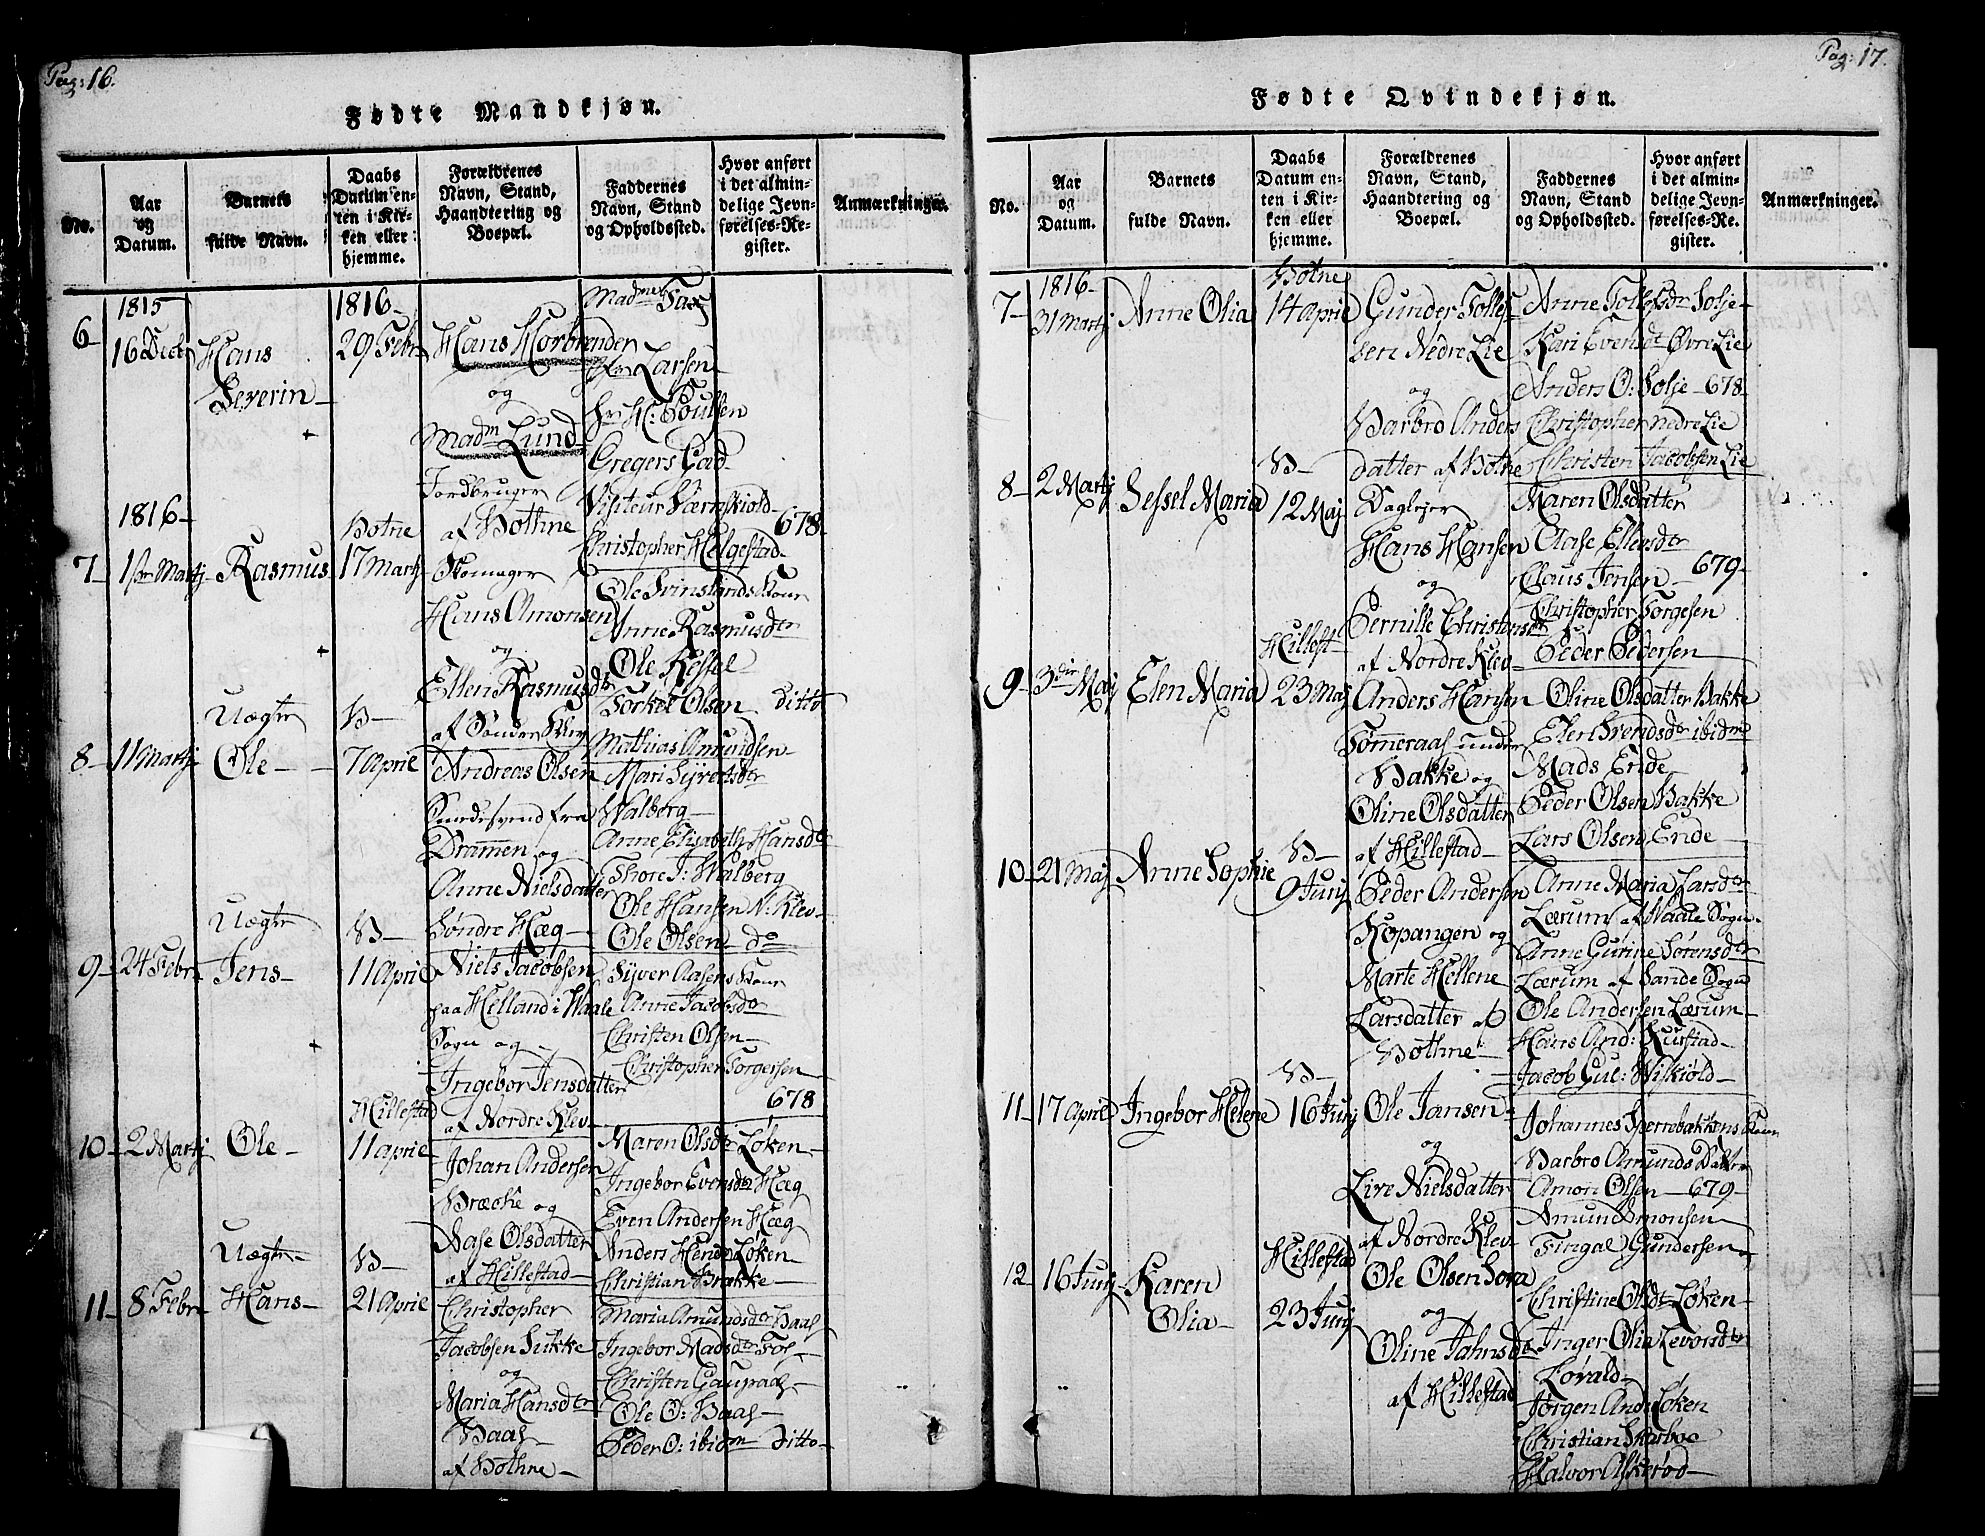 Pag: 16.
Fødte Mandkjøn.
No.
Aar og Datum.
Barnets fulde Navn.
Daabs Datum enten i Kirken eller hjemme.
Forældrenes Navn, Stand, Haandtering og Boepæl.
Faddernes Navn, Stand og Opholdssted.
Hvor anført i det almindelige Jevnførelses-Register.
Anmærkninger.
6
1815
16 Decbr
Hans
Severin
1816
29 Febr
Hans Horbrender
og
Madm Lund
Jordbruger
af Bothne
Larsen
Hr H: Poulsen
Gregers Gad
Visiteur
Christopher Helgestad
678
1816
7
1ste Martj
Rasmus
Botne
17 Martj
Skomager
Hans Amonsen
og
Ellen Rasmusdtr
af Søndre Klev
Ole Svinslands Kone
Anne Rasmusdtr
Ole Kessel
Torkel Olsen
Mathias Amundsen
ditto
8
11 Martj
Uægte
Ole
B
7 April
Andreas Olsen
Smedesvend fra
Drammen og
Anne Nielsdatter
Søndre Hæg
Mari Syvertsdtr
Walberg
Anne Elisabeth Hansdtr
Thore J: Walberg
Ole Hansen N: Klev
Ole Olsen do
9
24 Febr
Uægte
Jens
B
11 April
Niels Jacobsen
paa Helland i Waale
Sogn og
Ingebor Jensdatter
af Nordre Klev
Syver Aasens Kone
Anne Jacobsdtr
Christen Olsen
Christopher Torgersen
678
10
2 Martj
Ole
Hillestad
11 April
Johan Andersen
og
Aase Olsdatter
af Hillestad
Maren Olsdtr Løken
Ingebor Evensdtr Hæg
Even Andersen Hæg
Anders Hendr Løken
Christian Brække
11
8 Febr
Uægte
Hans
B
21 April
Christopher
Jacobsen Sukke
og
Maria Hansdtr
Baas
af Bothne
Maria Amundsdtr Baas
Ingebor Madsdtr Fos
Christen Gaupaas
Ole O: Baas
Peder O: ibidm
Ditto
Pag: 17.
Fødte Qvindekjøn.
No.
Aar og Datum.
Barnets fulde Navn.
Daabs Datum enten i Kirken eller hjemme.
Forældrenes Navn, Stand, Haandtering og Boepæl.
Faddernes Navn, Stand og Opholdssted.
Hvor anført i det almindelige Jevnførelses-Register.
Anmærkninger.
7
1816
31 Martj
Anne Olia
Botne
14 April
Gunder Tollef
sen Nedre Lie
og
Barbro Anders
datter af Botne
Anne Tollefsdr Solje
Kari Evensdt Øvre Lie
Anders O: Solje
678
Christopher Nedre Lie
Christen Jacobsen Lie
8
2 Martj
Sessel Maria
B
12 Maj
Daglejer
Hans Hansen
og
Pernille Christensdtr
af Nordre Klev
Maren Olsdatter
Aase Ellevsdtr
Claus Jensen
679
Christopher Torgesen
Peder Pedersen
9
3die Maj
Elen Maria
Hillest
23 Maj
Anders Hansen
Tømmeraas under
Bakke og
Oline Olsdatter
af Hillestad
Oline Olsdatter Bakke
Elen Svendsdtr ibidm
Mads Ende
Peder Olsen Bakke
Lars Olsen Ende
10
21 Maj
Anne Sophie
B
9 Junj
Peder Andersen
Kopangen og
Marte Hellene
Larsdatter af
Bothne
Anne Maria Larsdtr
Lærum af Waale Sogn
Anne Gurine Sørensdtr
Lærum af Sande Sogn
Ole Andersen Lærum
Hans And: Kurstad
Jacob Gul: Wiskiøld
11
17 April
Ingebor Helene
B
16 Junj
Ole Jansen
og
Live Nielsdatter
af Nordre Klev
Johannes Sperrebakkens Kone
Barbro Amunds Datter
Amon Olsen
679
Amund Amonsen
Fingal Gundersen
12
16 Junj
Karen
Olia
Hillestad
23 Junj
Ole Olsen Sora
og
Oline Jahnsdtr
af Hillestad
Christine Olsdt Løken
Inger Olia Levorsdtr
Løvald
Jørgen And: Løken
Christian Skarboe
Halvor Askerød